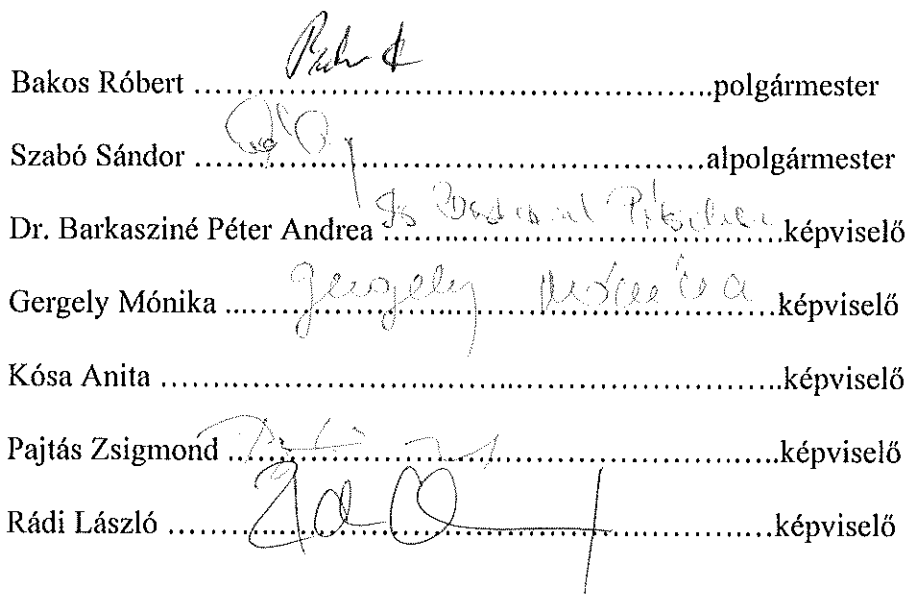 Bakos Róbert ……………………………………polgármester
Szabó Sándor ……………………………………alpolgármester
Dr. Barkasziné Péter Andrea ……………………………képviselő
Gergely Mónika ……Gergely Mónika……képviselő
Kósa Anita ……………………………………………képviselő
Pajtás Zsigmond ………………………………………képviselő
Rádi László ……………………………………………képviselő